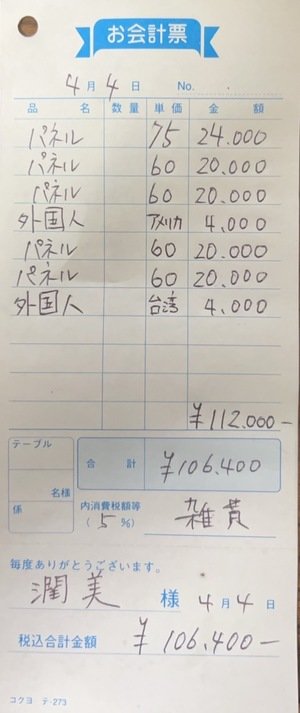 お会計票
4月4日 No.
品名 数量 単価 金額
パネル 75 24.000
パネル 60 20.000
パネル 60 20.000
外国人 アメリカ 4,000
パネル 60 20.000
パネル 60 20.000
外国人 台湾 4,000
¥112.000-
テーブル
名様
係
合計 ¥106.400
内消費税額等
(5%)
雑費
毎度ありがとうございます。
潤美 様 4月4日
税込合計金額 ¥106.400-
コクヨ テ-273